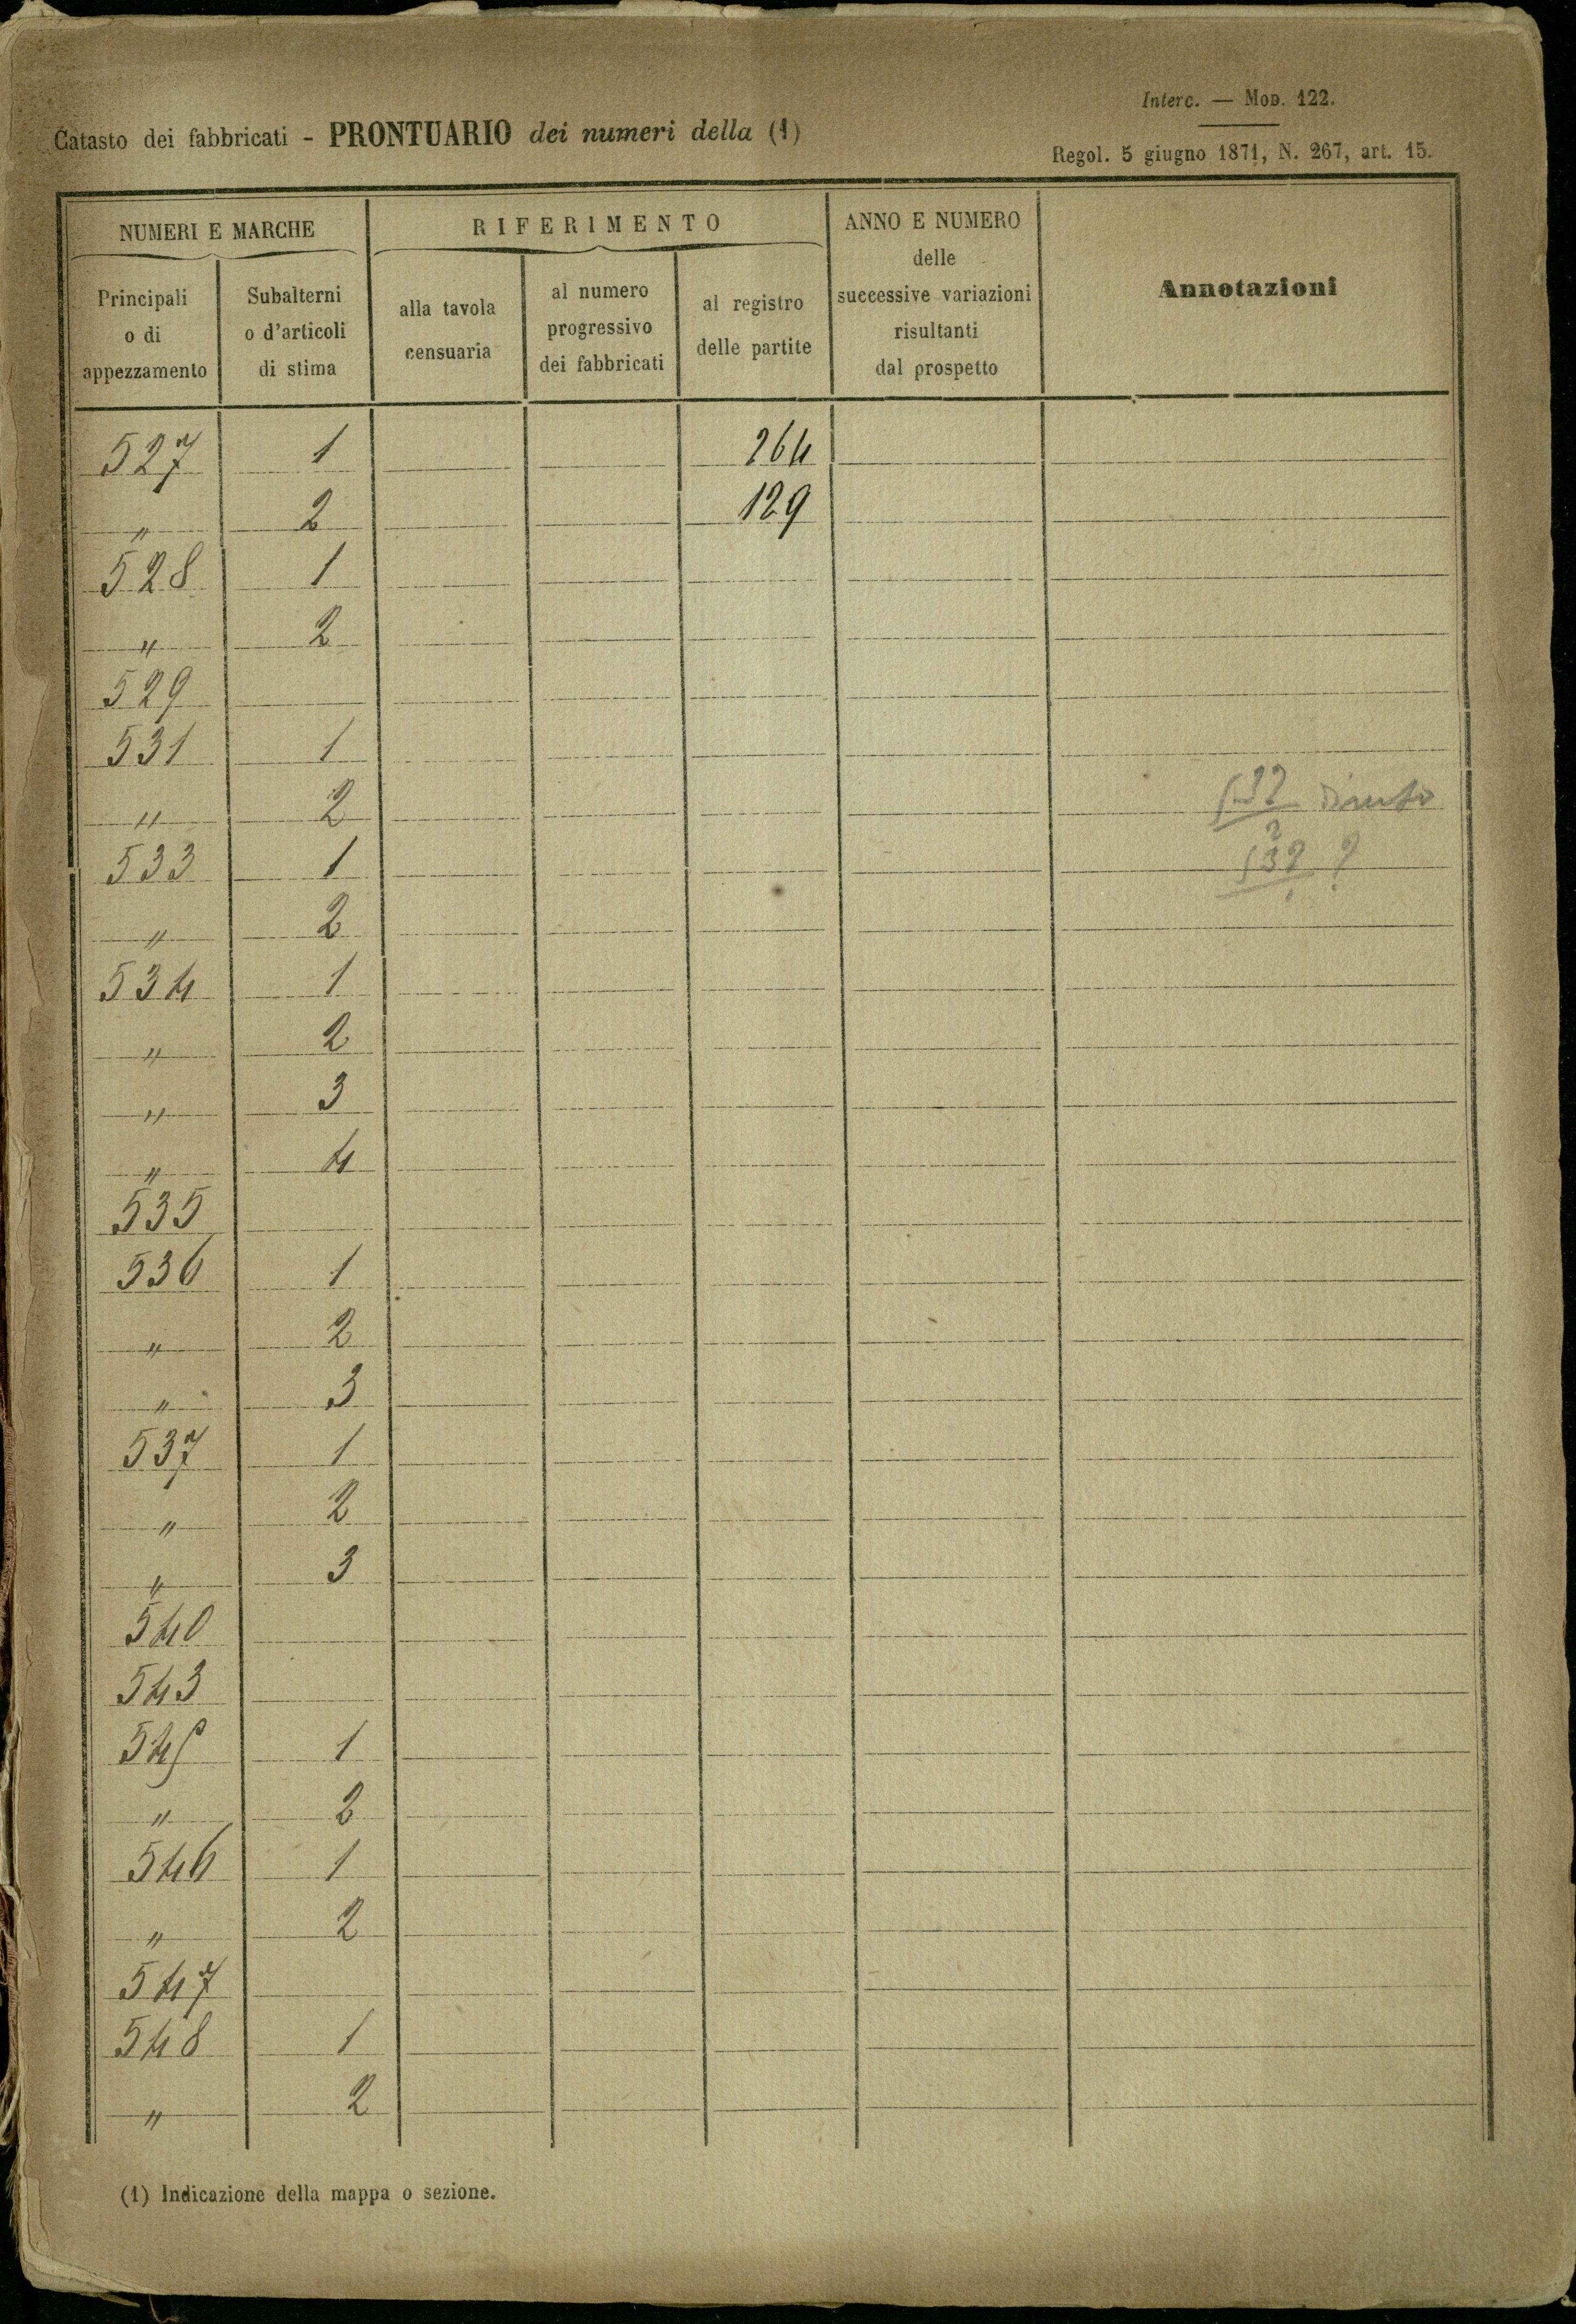 Interc. — Mod. 122.
Catasto dei fabbricati - PRONTUARIO dei numeri della (1)
Regol. 5 giugno 1871, N. 267, art. 15.
NUMERI E MARCHE
Principali
o di
appezzamento
Subalterni
o d'articoli
di stima
RIFERIMENTO
alla tavola
censuaria
al numero
progressivo
dei fabbricati
al registro
delle partite
ANNO E NUMERO
delle
successive variazioni
risultanti
dal prospetto
Annotazioni
527 1 264
" 2 129
528 1
" 2
529
531 1
" 2 532
533 1 532 ?
" 2
534 1
" 2
" 3
" 4
535
536 1
" 2
" 3
537 1
" 2
" 3
540
543
545 1
" 2
546 1
" 2
547
548 1
" 2
(1) Indicazione della mappa o sezione.